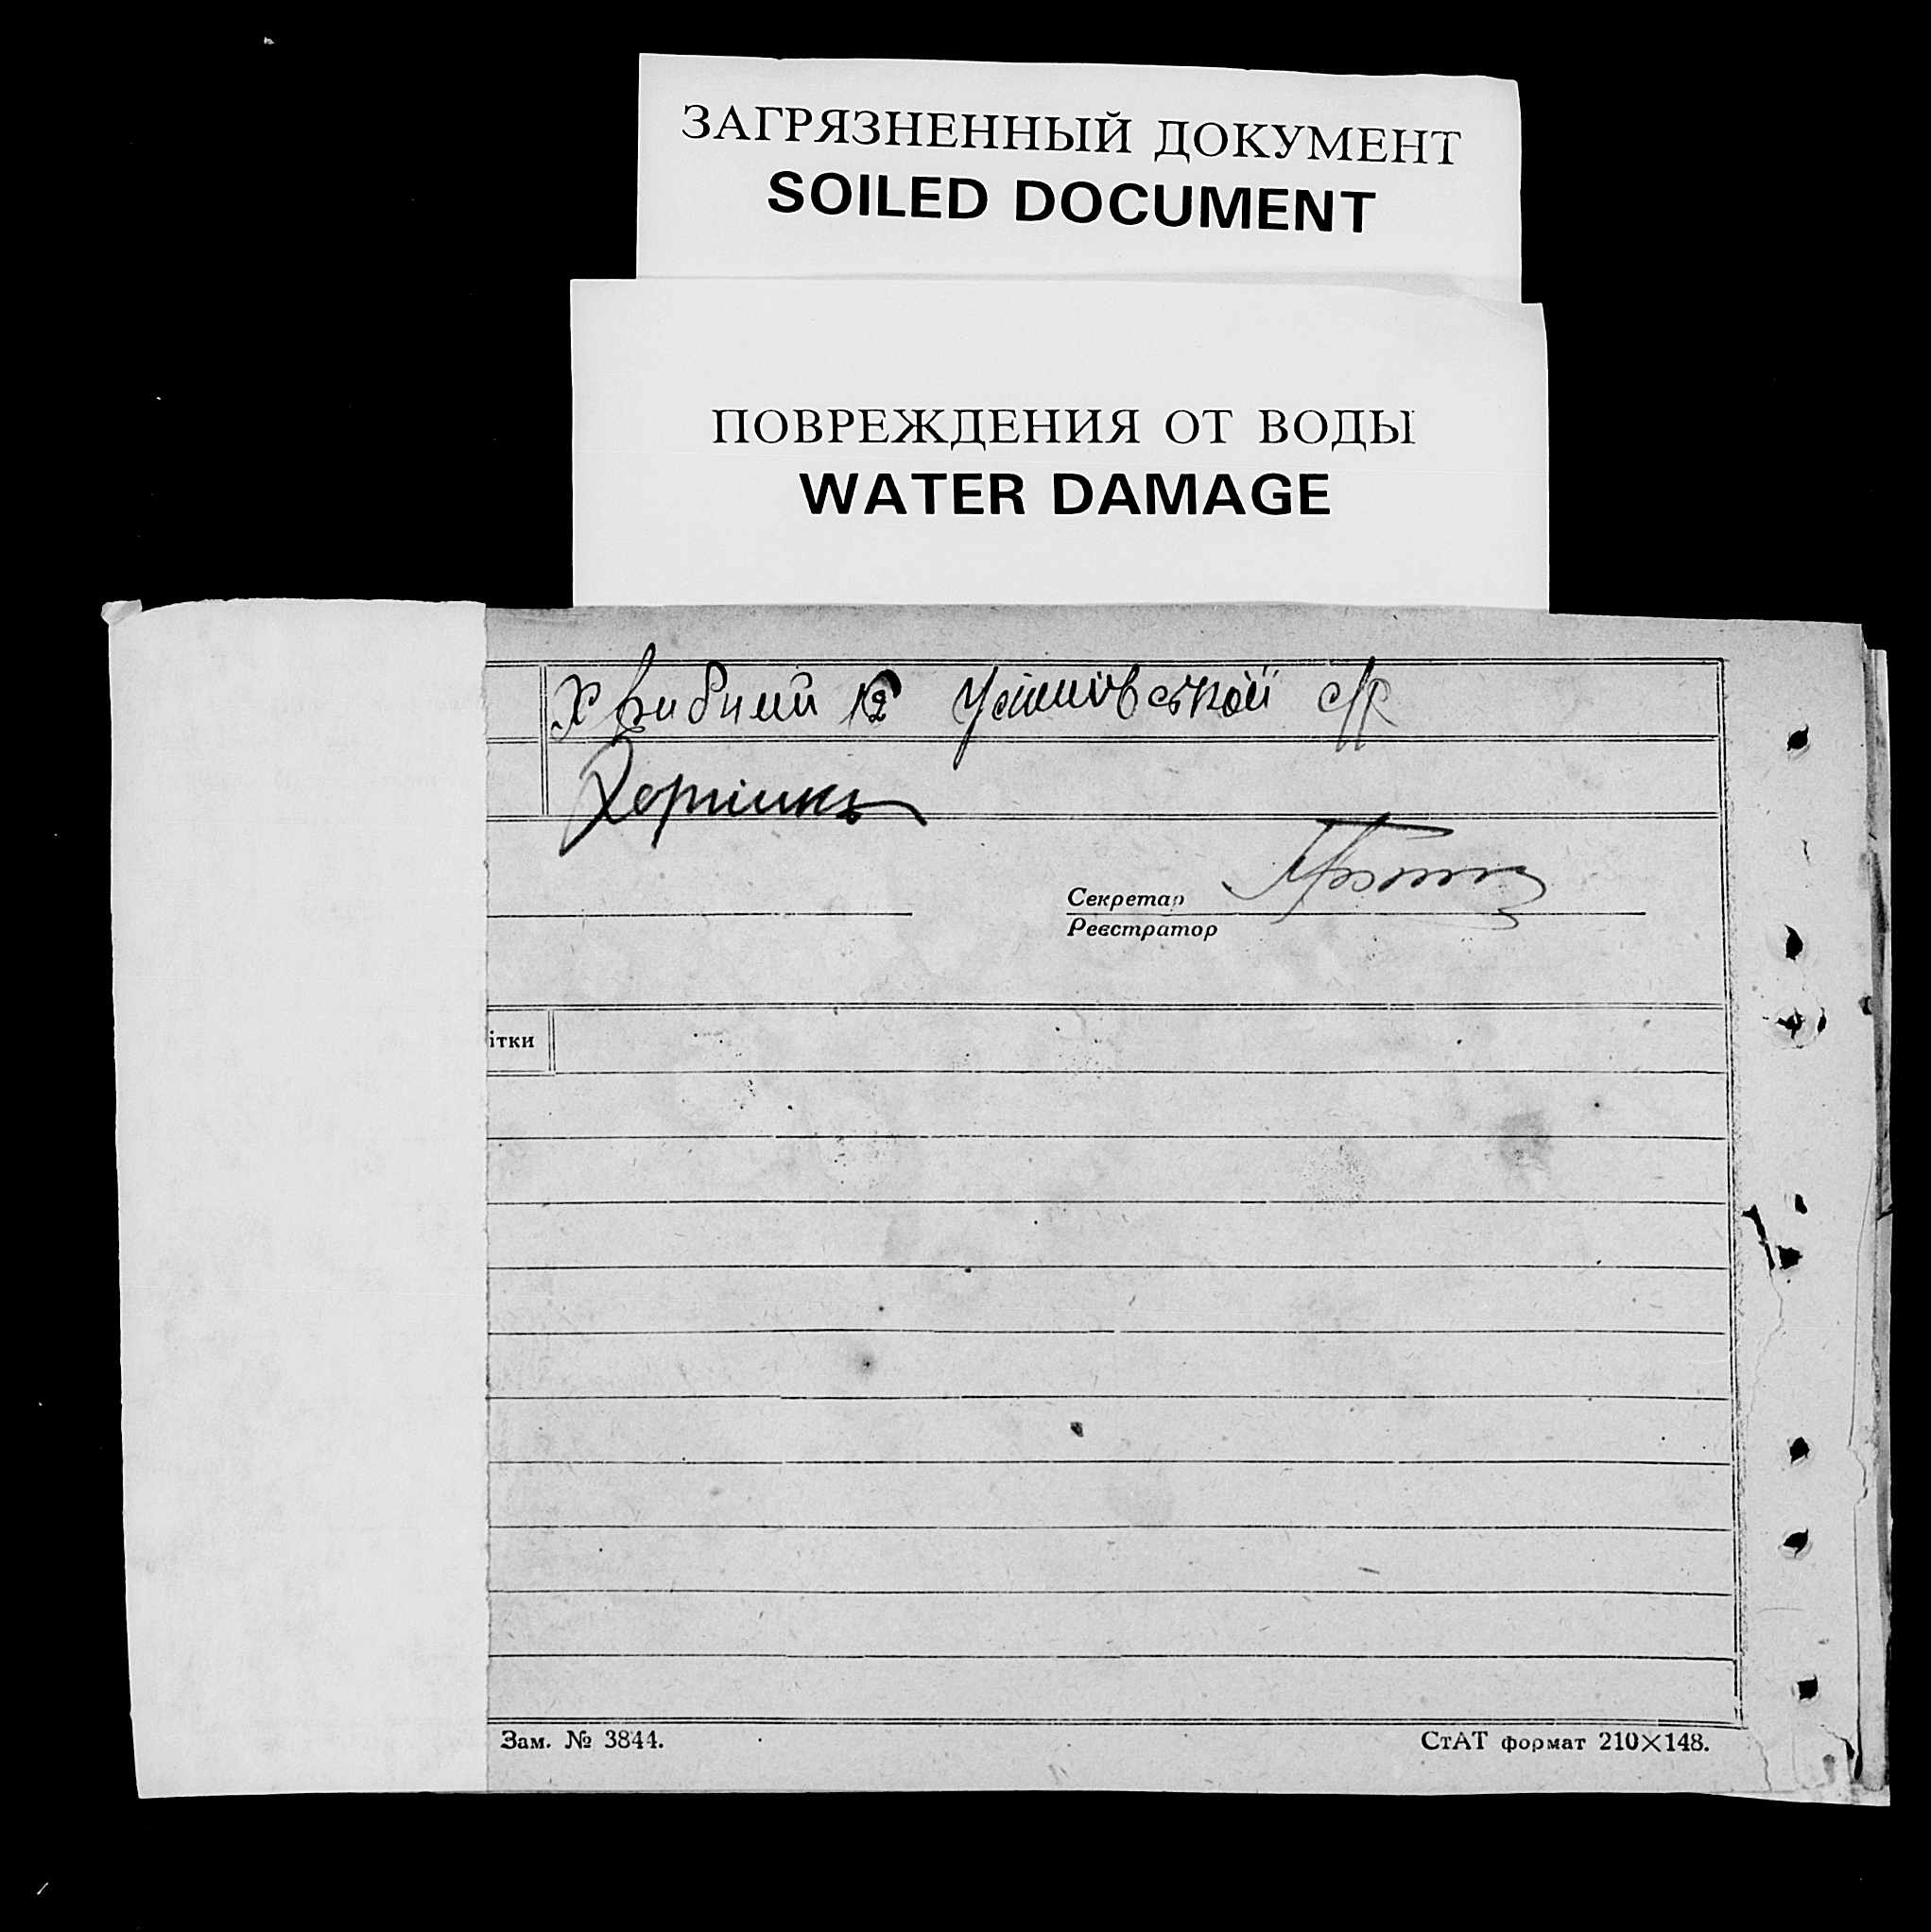 ЗАГРЯЗНЕННЫЙ ДОКУМЕНТ
SOILED DOCUMENT
ПОВРЕЖДЕНИЯ ОТ ВОДЫ
WATER DAMAGE
с/р
Секретар
Реєстратор
ітки
Зам. № 3844.
СтАТ формат 210×148.